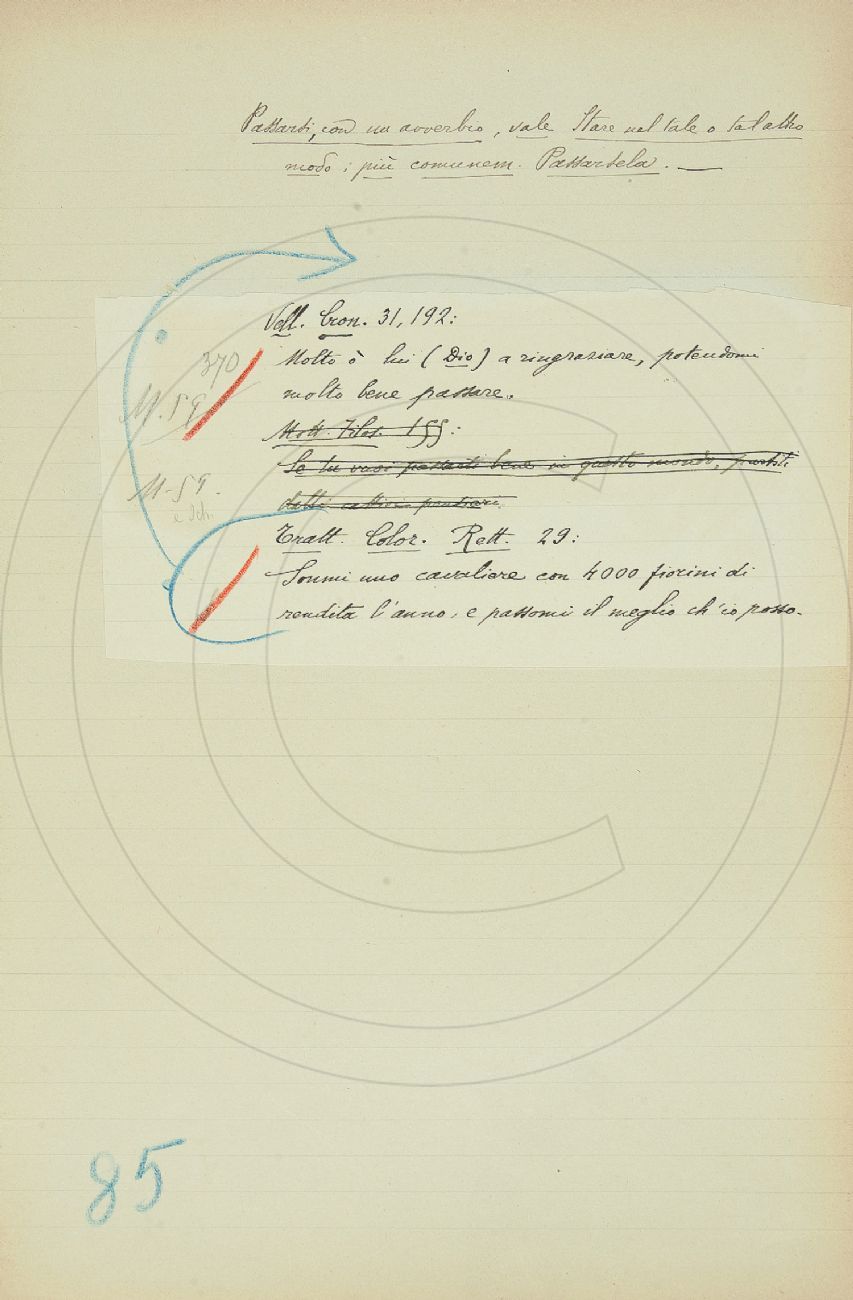 Passarsi, con un avverbio, vale Stare nel tale o tal altro
modo; più comunem. Passarsela. —
Vell. Cron. 31, 192:
370
Molto ò lui (Dio) a ringraziare, potendomi
M. SS.
molto bene passare.
Mott. Filos. 155:
Se tu vuoi passarti bene in questo mondo, partiti
M. SS.
dalli cattivi pensieri.
Tratt. Color. Rett. 29:
Sonmi uno cavaliere con 4000 fiorini di
rendita l'anno, e passomi il meglio ch'io posso.
85